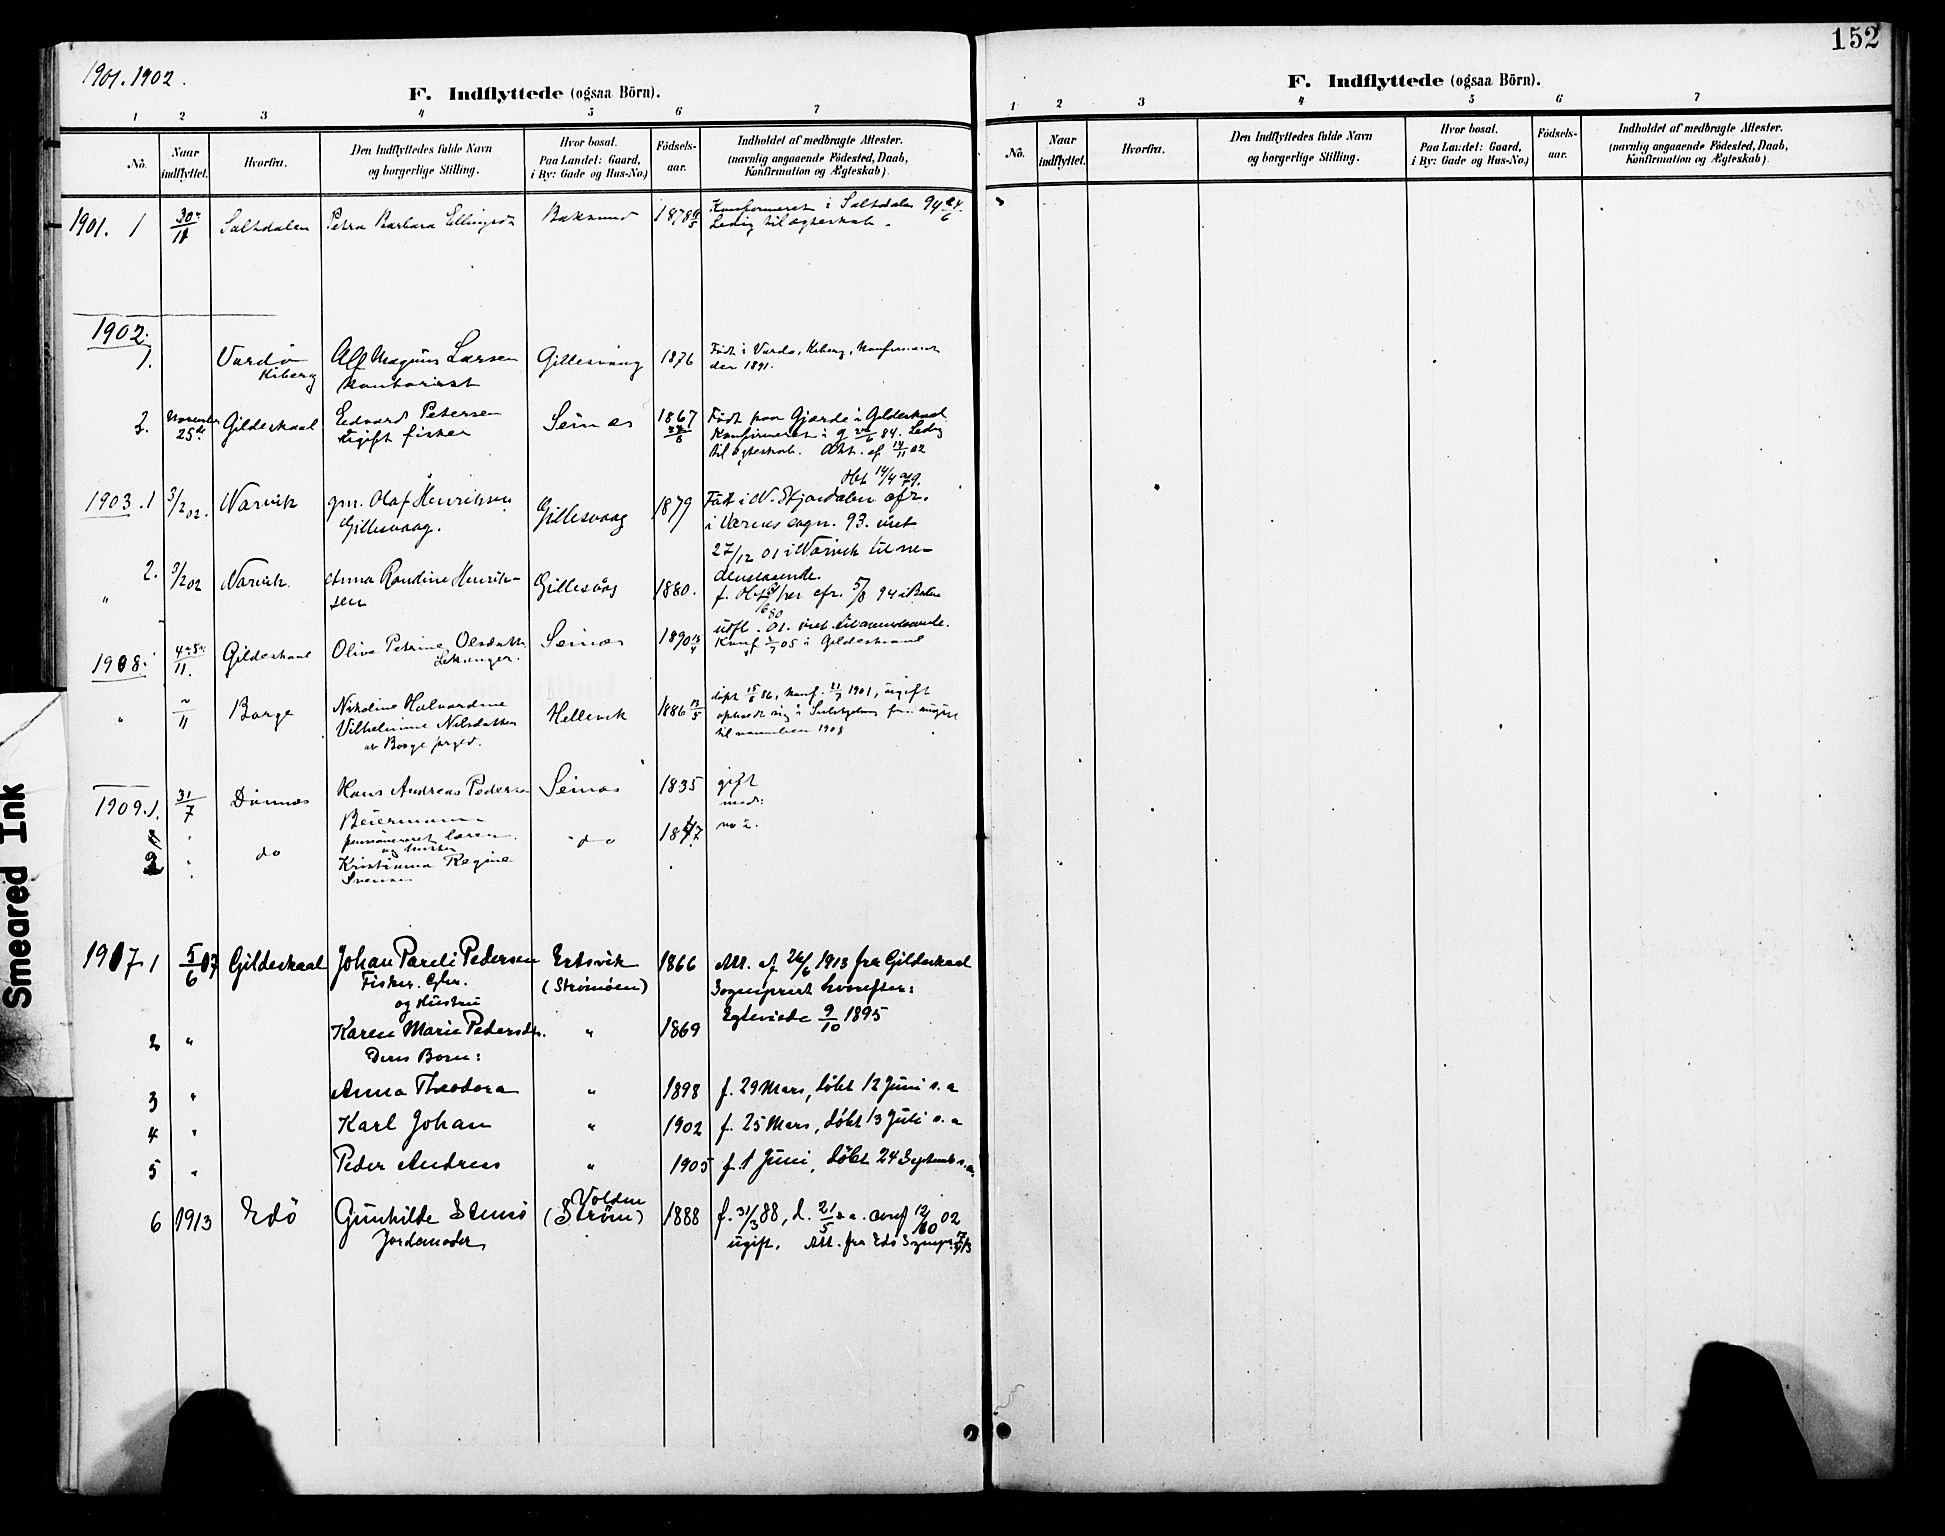 1901.1902.
F. Indflyttede (ogsaa Börn).
1 2 3 4 5 6 7
Nö.
Naar indflyttet.
Hvorfra.
Den Indflyttedes fulde Navn og borgerlige Stilling.
Hvor bosat. Paa Landet: Gaard, i By: Gade og Hus-No.)
Födsels-aar.
Indholdet af medbragte Attester. (navnlig angaaende Födested, Daab, Konfirmation og Ægteskab)
1901. 1 30/11 Saltdalen Petra Barbara Ellingsdt 1878
Konfirmeret i Saltdalen 94 24/6
Ledig til ægteskab.
1902.
1. Vardö Alf Magnus Larsen Gillesvaag 1876 Födt i Vardö, Kiberg, konfirmeret
Kiberg kontorist der 1891.
2. November 25de Gildeskaal Edvard Petersen Seines 1867 Födt paa Gjærde i Gildeskaal
ugift fisker Konfirmeret i g 84. Ledig
til ægteskab. Att. af 14/11 02
1903. 1 3/2 02. Narvik gm. Olaf Henriksen Gillesvaag 1879 Födt i N. Stjørdalen
Gillesvaag. i Værnes sogn. 93. viet
27/12 01 i Narvik til ne-
denstaaende.
" 2. 3/2 02 Narvik. Anna Randine Henrik- Gillesvåg 1880.
sen
1908. 11. Gildeskaal Olive Petrine Olsdatter Seines 1890 Konf 05 i Gildeskaal
" 11 Borge Nikoline Halvardine Hellevik 1886 13/5 döpt 86, konf. 1901, ugift
Vilhelmine Nilsdatter
av Borge prgld. til november 1908
1909. 1. 31/7 Dönnes Hans Andreas Pedersen Seines 1835 gift
Beiermann med:
pensioneret lærer no 2.
og hustru
2 do Kristianna Regine do 1847
Svensen
1907 1 5/6 07 Gildeskaal Johan Pareli Pedersen Ertsvik 1866 Att. af 26/6 1913 fra Gildeskaal
Fisker. Gbr. (Strømøen) Sogneprest hvorefter:
og Hustru Egteviede 9/10 1895
2 " Karen Marie Pedersdtr. " 1869
Deres Born:
3 " Anna Theodora " 1898 f. 29 Mars, døbt 12 Juni s. a
4 " Karl Johan " 1902 f. 25 Mars, døbt 13 Juli s. a
5 " Peder Andreas " 1905 f. 1 Juni, døbt 24 Septemb s. a.
6 1913 Edö Gunhilde Stensö Volden (Strøm) 1888 f. 31/3 88, d. 21/5 s. a. conf 12/10 02
Jordemoder ugift. Att. fra Edö
152
F. Indflyttede (ogsaa Börn).
1 2 3 4 5 6 7
Nö.
Naar indflyttet.
Hvorfra.
Den Indflyttedes fulde Navn og borgerlige Stilling.
Hvor bosat. Paa Landet: Gaard, i By: Gade og Hus-No.)
Födsels-aar.
Indholdet af medbragte Attester. (navnlig angaaende Födested, Daab, Konfirmation og Ægteskab)
Smeared Ink